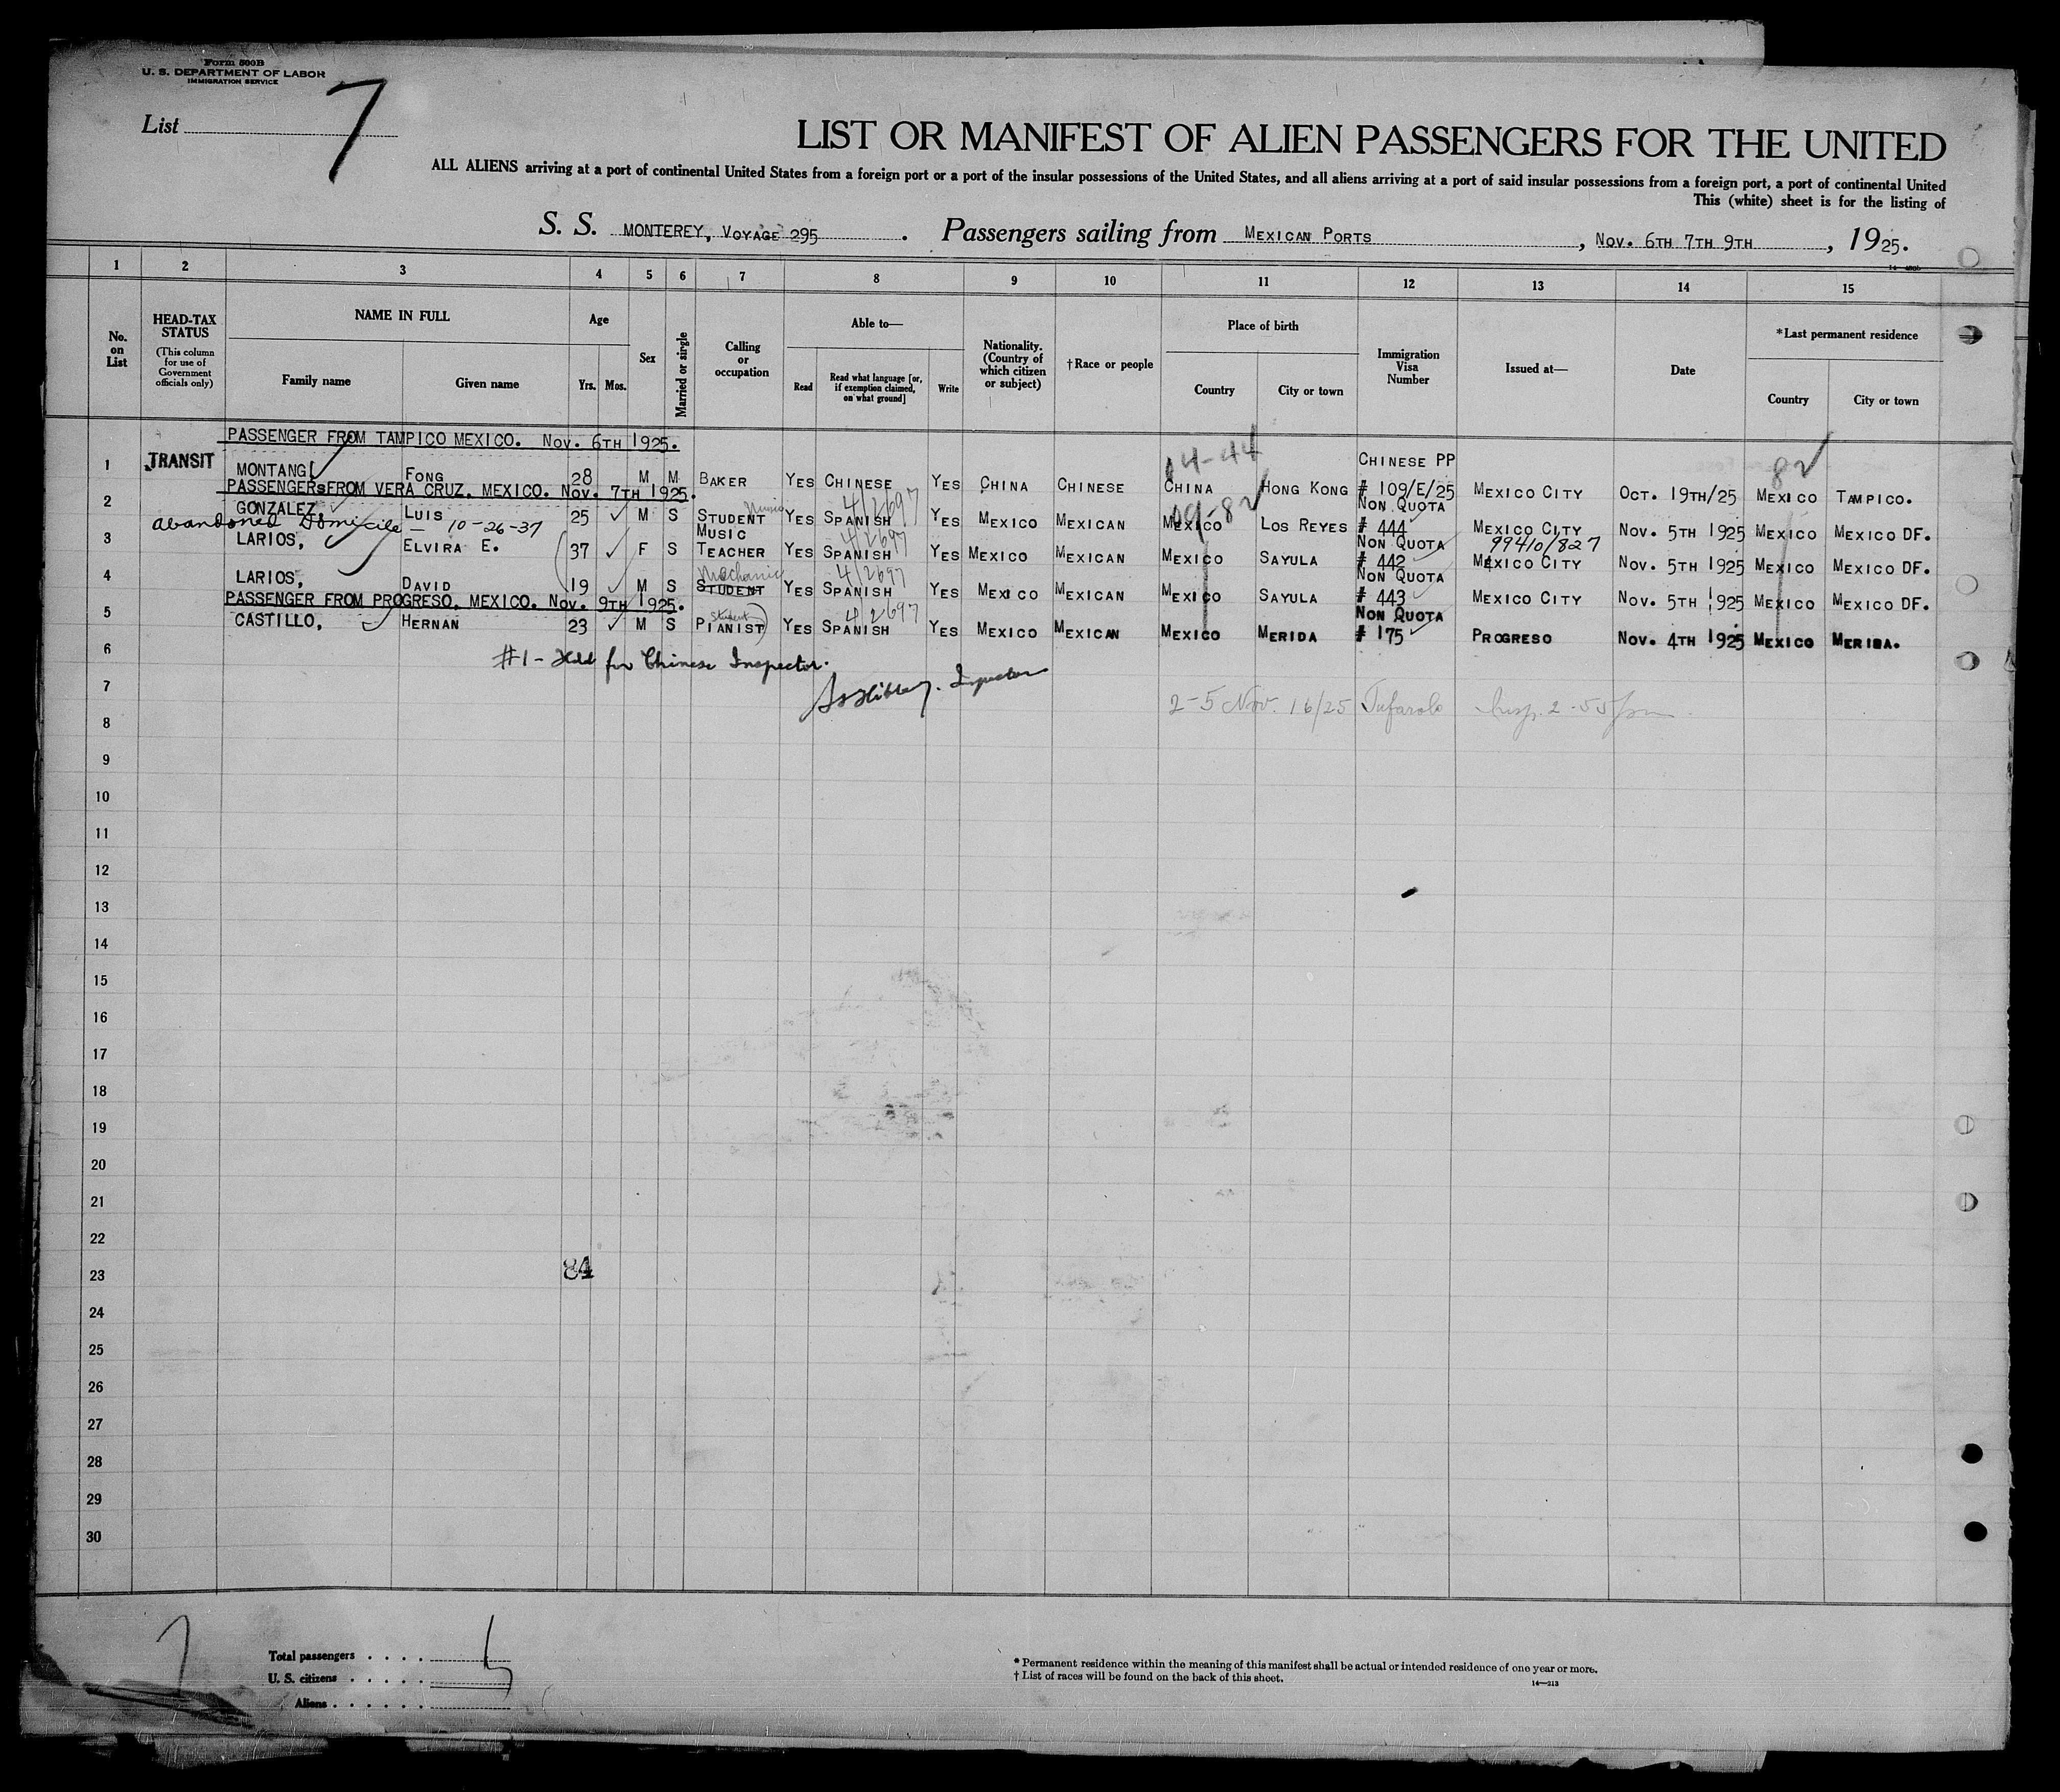 Form 500B
U. S. DEPARTMENT OF LABOR
IMMIGRATION SERVICE
List 7
LIST OR MANIFEST OF ALIEN PASSENGERS FOR THE UNITED
ALL ALIENS arriving at a port of continental United States from a foreign port or a port of the insular possessions of the United States, and all aliens arriving at a port of said insular possessions from a foreign port, a port of continental United
This (white) sheet is for the listing of
S. S. MONTEREY, VOYAGE 295. Passengers sailing from MEXICAN PORTS, NOV. 6TH 7TH 9TH, 1925.
1 2 3 4 5 6 7 8 9 10 11 12 13 14 15
No. on List
HEAD-TAX STATUS
(This column for use of Government officials only)
NAME IN FULL
Family name Given name
Age
Yrs. Mos.
Sex
Married or single
Calling or occupation
Able to—
Read
Read what language [or, if exemption claimed, on what ground]
Write
Nationality. (Country of which citizen or subject)
†Race or people
Place of birth
Country City or town
Immigration Visa Number
Issued at—
Date
*Last permanent residence
Country City or town
PASSENGER FROM TAMPICO MEXICO. NOV. 6TH 1925.
04-44 82
CHINESE PP
1 TRANSIT MONTANG FONG 28 M M BAKER YES CHINESE YES CHINA CHINESE CHINA HONG KONG # 109/E/25 MEXICO CITY OCT. 19TH/25 MEXICO TAMPICO.
PASSENGERS FROM VERA CRUZ. MEXICO. NOV. 7TH 1925.
Music 4/2697 09-82 NON QUOTA
2 GONZALEZ, LUIS 25 M S STUDENT YES SPANISH YES MEXICO MEXICAN MEXICO LOS REYES # 444 MEXICO CITY NOV. 5TH 1925 MEXICO MEXICO DF.
abandoned Domicile — 10-26-37
MUSIC 4/2697 NON QUOTA 99410/827
3 LARIOS, ELVIRA E. 37 F S TEACHER YES SPANISH YES MEXICO MEXICAN MEXICO SAYULA # 442 MEXICO CITY NOV. 5TH 1925 MEXICO MEXICO DF.
Mechanic 4/2697 NON QUOTA
4 LARIOS, DAVID 19 M S STUDENT YES SPANISH YES MEXICO MEXICAN MEXICO SAYULA # 443 MEXICO CITY NOV. 5TH 1925 MEXICO MEXICO DF.
PASSENGER FROM PROGRESO. MEXICO. NOV. 9TH 1925.
Student 4/2697 NON QUOTA
5 CASTILLO, HERNAN 23 M S PIANIST YES SPANISH YES MEXICO MEXICAN MEXICO MERIDA # 175 PROGRESO NOV. 4TH 1925 MEXICO MERIDA.
6 #1 - Held for Chinese Inspector.
7 Inspector
2-5 Nov. 16/25 Insp. 2.55 pm
8
9
10
11
12
13
14
15
16
17
18
19
20
21
22
23 84
24
25
26
27
28
29
30
7
Total passengers . . . . 5
U. S. citizens . . . . .
Aliens . . . . . .
* Permanent residence within the meaning of this manifest shall be actual or intended residence of one year or more.
† List of races will be found on the back of this sheet.
14—213